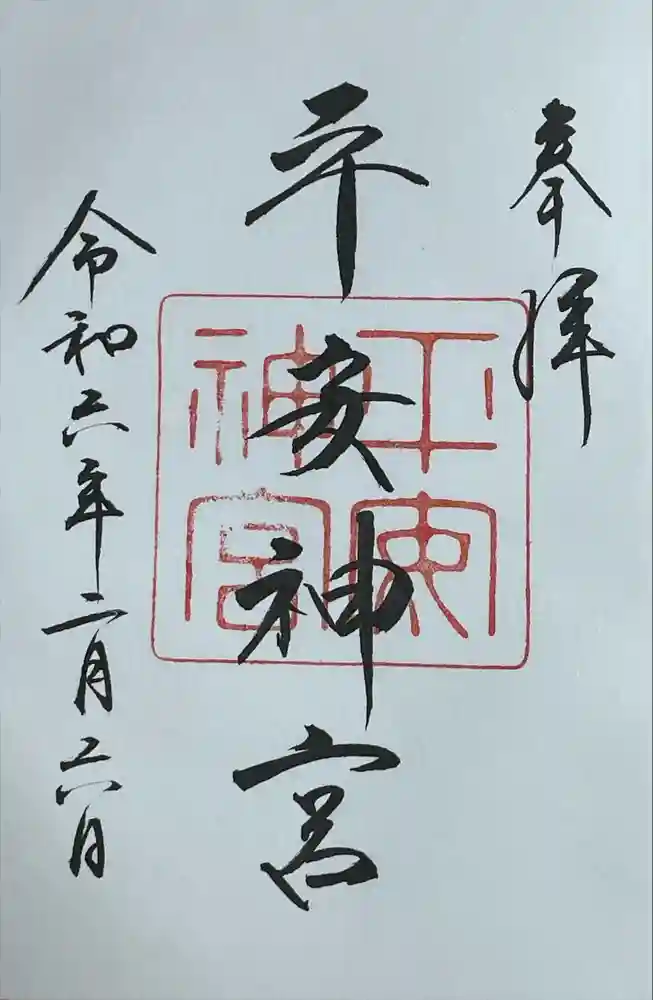 奉拝
平安神宮
平安
神宮
令和六年二月二六日